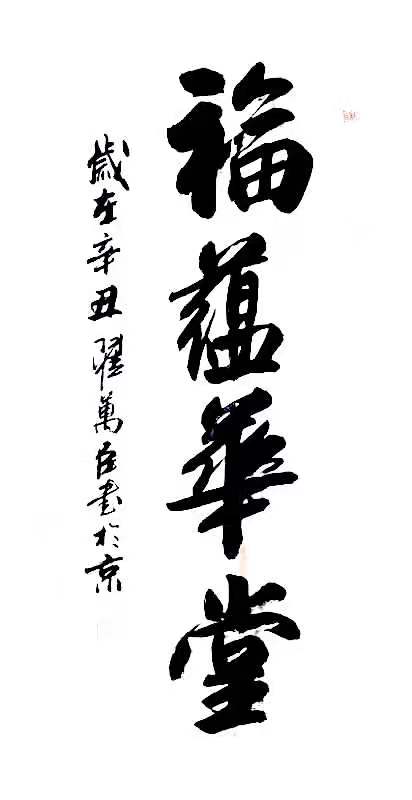 福蕴華堂
歲在辛丑翟萬臣書於京